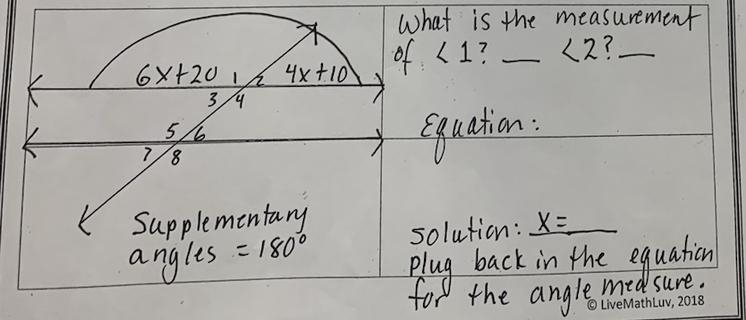 6x+20 1 2 4x+10
3 4
5 6
7 8
Supplementary
angles = 180°
What is the measurement
of <1? __ <2? __
Equation:
solution: x= ____
plug back in the equation
for the angle measure.
© LiveMathLuv, 2018